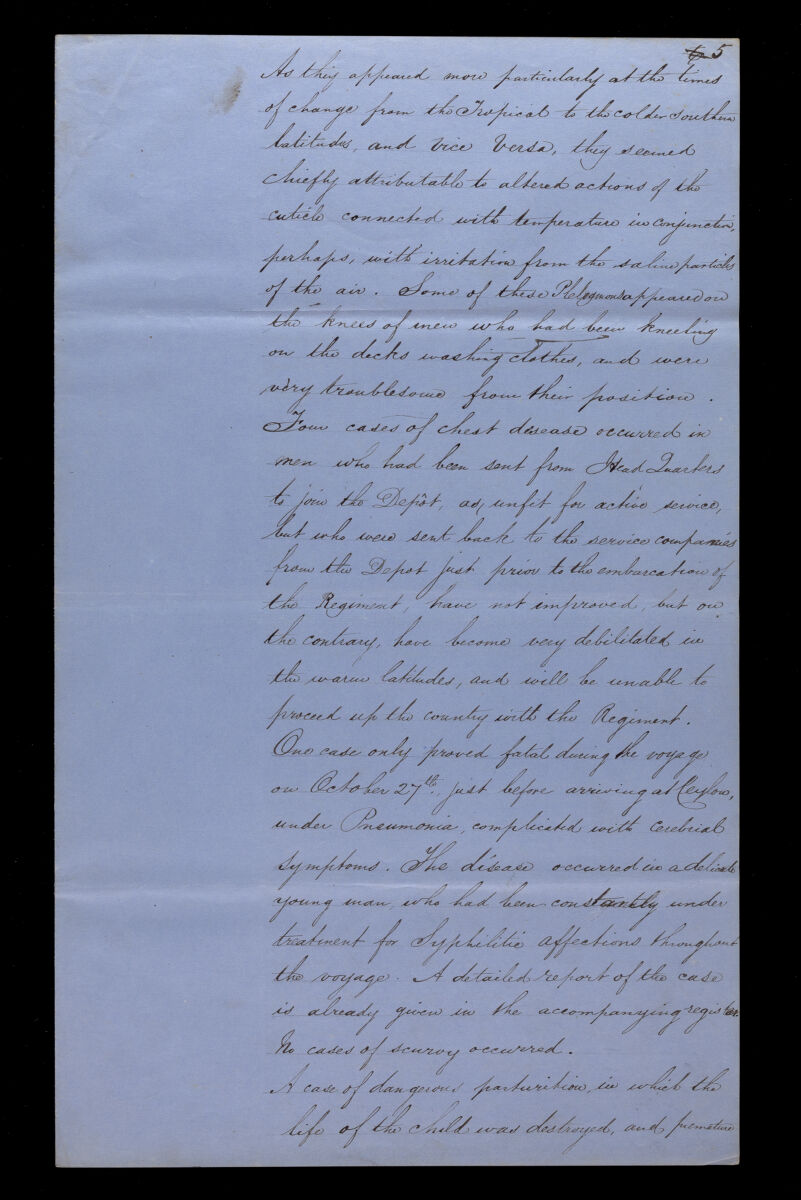 5
As they appeared more particularly at the times
of change from the Tropical to the colder southern
latitudes, and vice versa, they seemed
chiefly attributable to altered actions of the
cuticle connected with temperature in conjunction,
perhaps, with irritation from the saline particles
of the air. Some of these Phlegmons appeared on
the knees of men who had been kneeling
on the decks washing clothes, and were
very troublesome from their position.
Four cases of chest disease occurred in
men who had been sent from Head Quarters
to join the Depôt, as unfit for active service,
but who were sent back to the service companies
from the Depot just prior to the embarcation of
the Regiment, have not improved, but on
the contrary, have become very debilitated in
the warm latitudes, and will be unable to
proceed up the country with the Regiment.
One case only proved fatal during the voyage
on October 27th, just before arriving at Ceylon,
under Pneumonia, complicated with Cerebrial
symptoms. The disease occurred in a delicate
young man, who had been constantly under
treatment for Syphilitic affections throughout
the voyage. A detailed report of the case
is already given in the accompanying register.
No cases of scurvy occurred.
A case of dangerous parturition, in which the
life of the child was destroyed, and premature